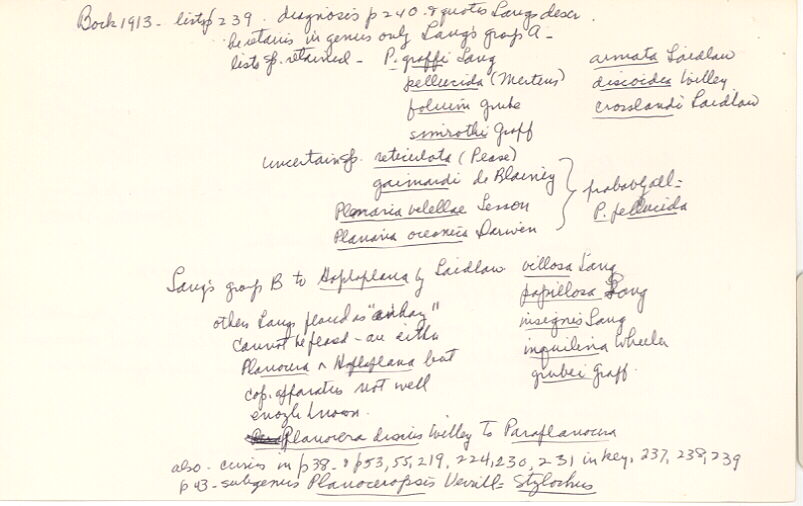 Bock 1913 - lists p 239. diagnosis p 240. & quotes Lang's descr.
he retains in genus only Lang's group A -
lists sp. retained - P. graffi Lang armata Laidlaw
pellucida (Mertens) discoidea Willey
folium Grube crosslandi Laidlaw
smirothi Graff
uncertain sp. reticulata (Pease)
gaimardi de Blainey
Planaria velellae Lesson
Planaria oceanica Darwin
probably all =
P. pellucida
Lang's group B to Hoploplana by Laidlaw villosa Lang
papillosa Lang
insignis Lang
inquilina Wheeler
grubei Graff
others Lang placed as
cannot be placed - are either
Planocera or Hoploplana but
cop. apparatus not well
enough known.
Planocera discus Willey to Paraplanocera
also - curves in p38 - & p53, 55, 219, 224, 230, 231 in key, 237, 238, 239
p 43 - subgenus Planoceropsis Verrill = Stylochus